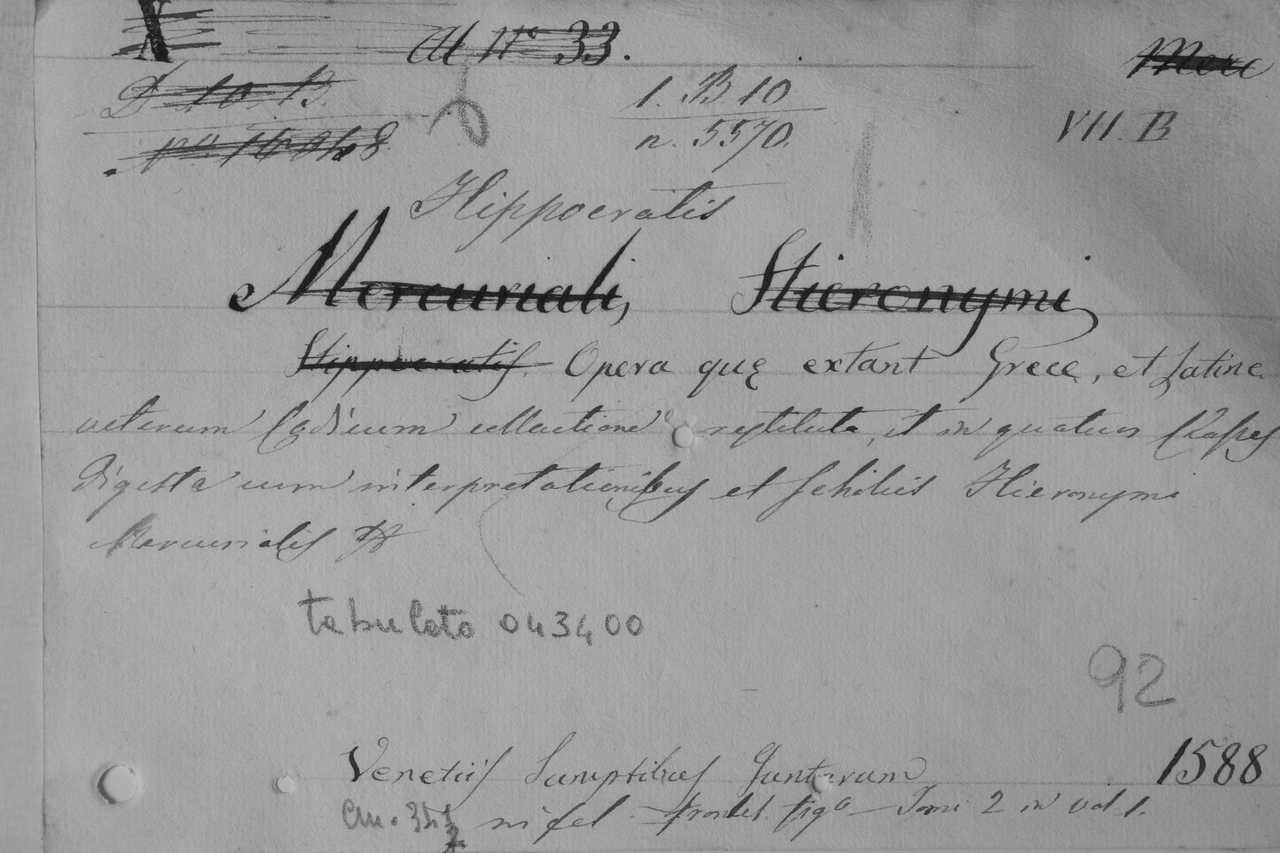 X Al N° 33. Merc
D 10 B. 1. B 10
n. 5570. VII. B
Hippocratis
Mercuriali, Hieronymi
Hippocratis. Opera quę extant Grece, et Latine
veterum Codicum collactione restituta, et in quatuor Classes
Digesta cum interpretationibus et Scholiis Hieronymi
Mercurialis
tabulato 043400
92
Venetiis Sumptibus Juntarum 1588
in fol. frontesp. figo Tomi 2 in vol 1.